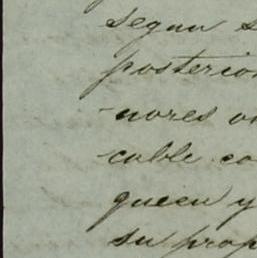 segun s
posterio
-nores o
cable co
queen y
su prop